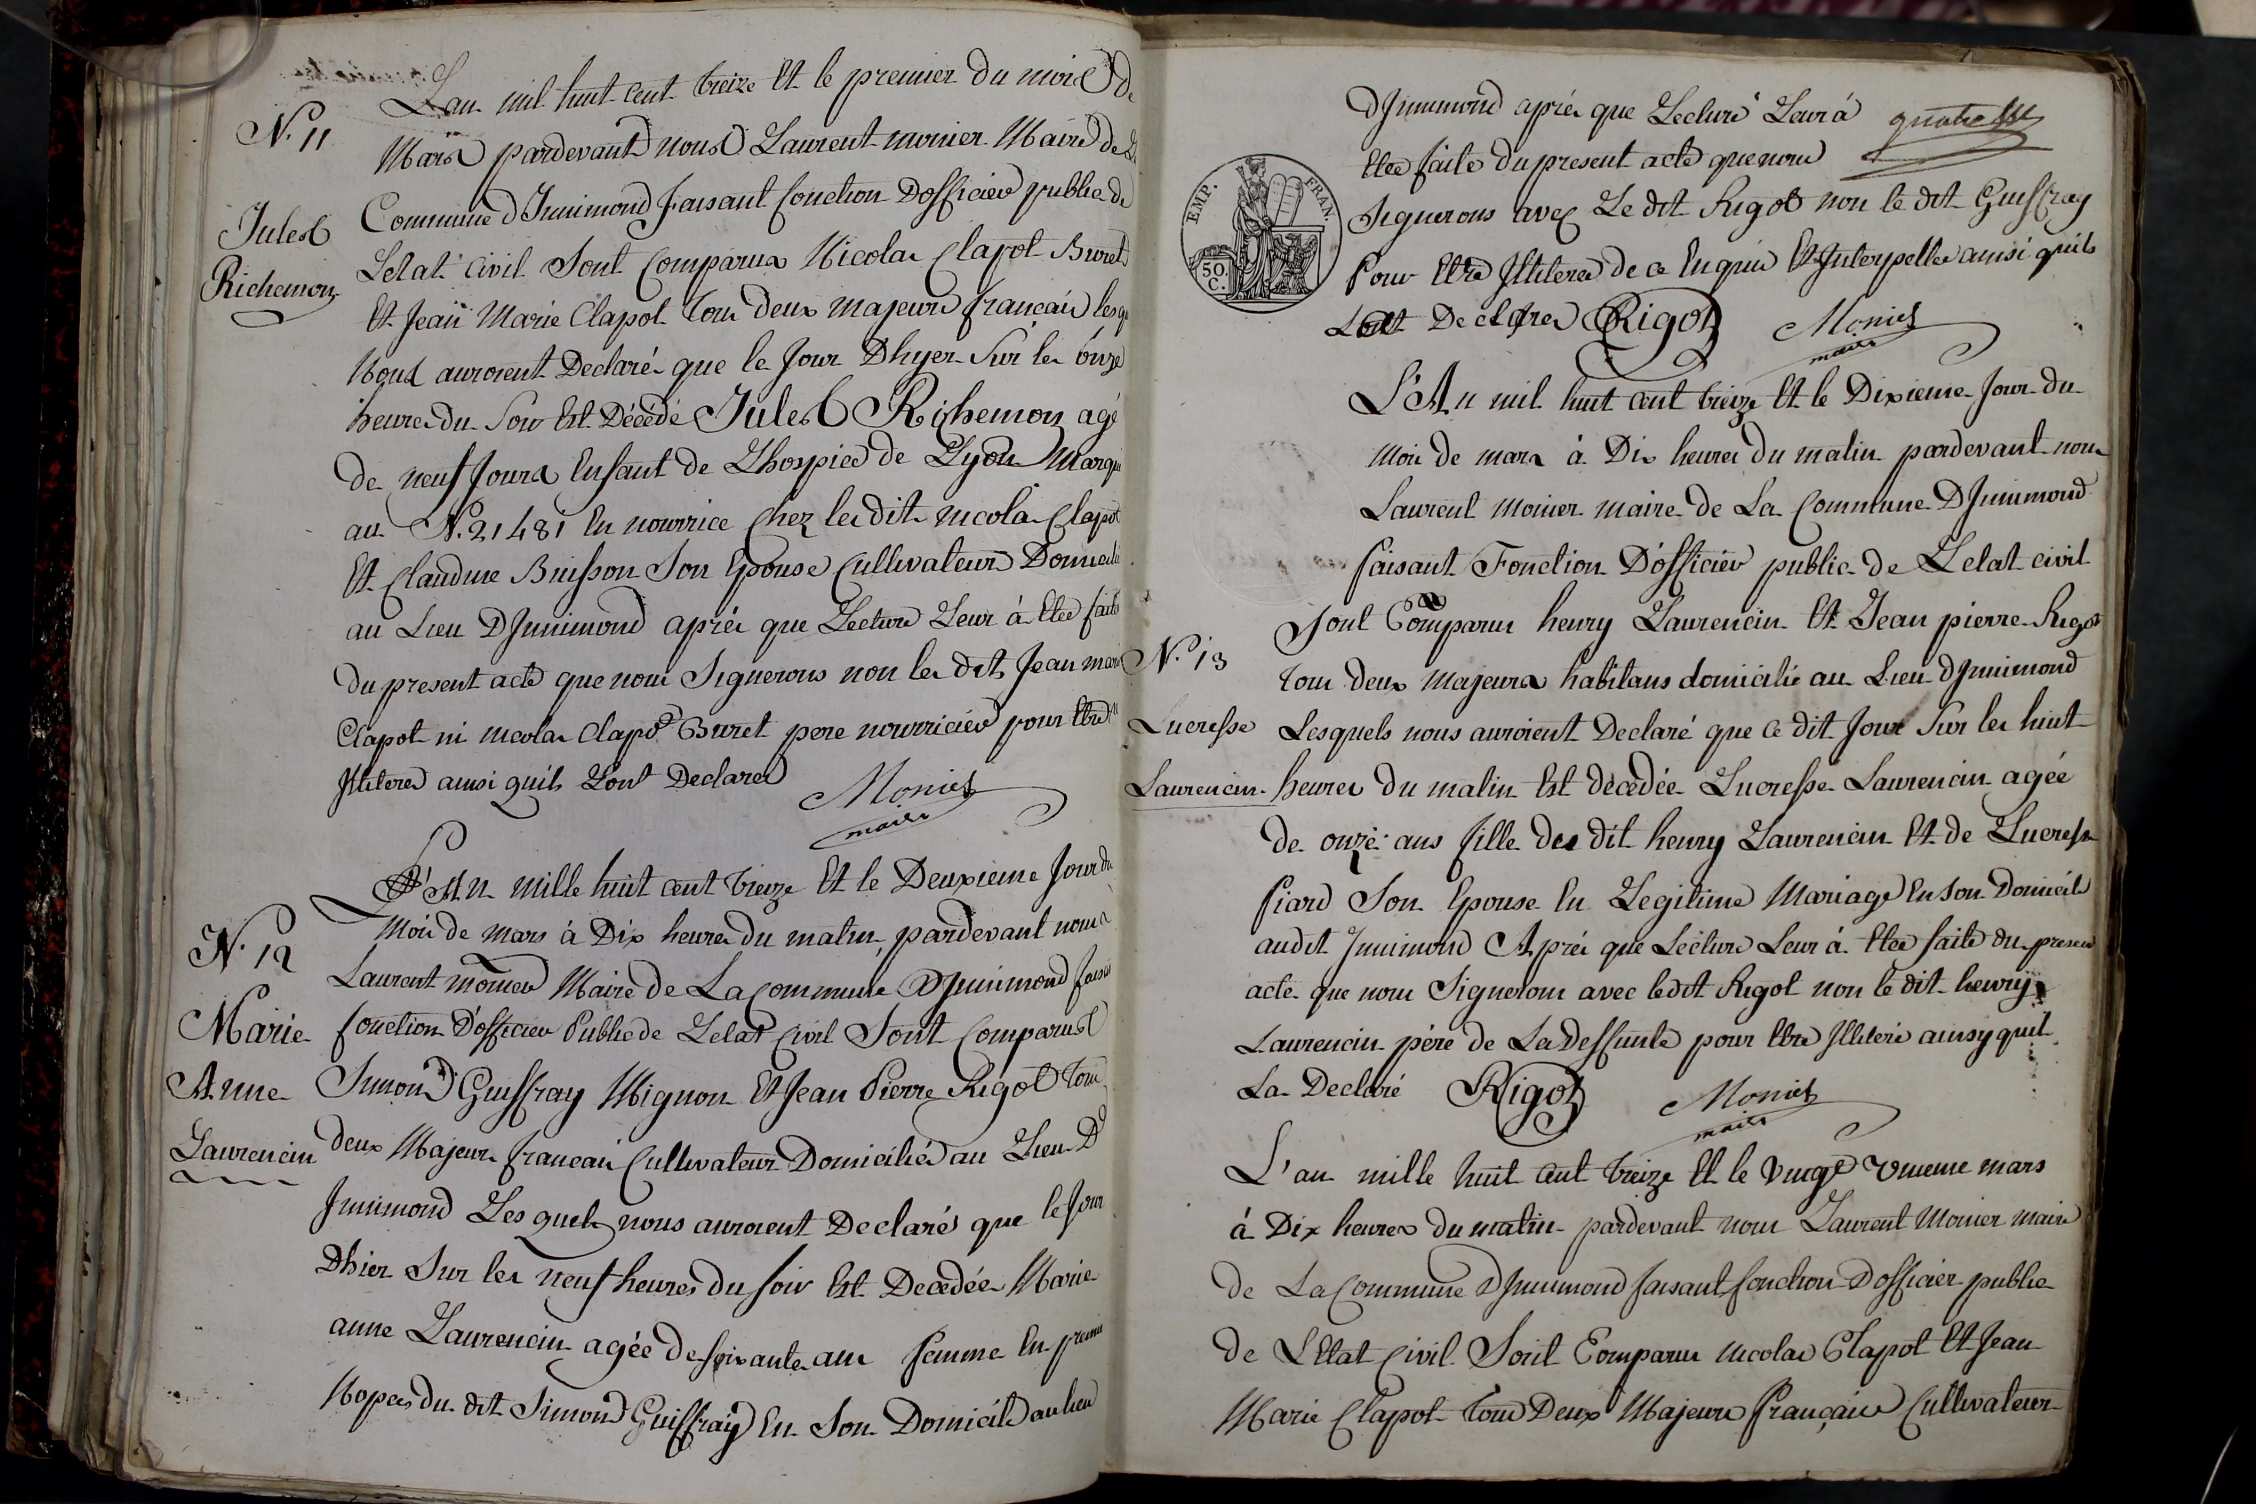 N.º 11
Jules
Richemon
Lan mil huit cent treize Et le premier du mois de
Mars pardevant nous Laurent monier Maire de
Commune d'Innimond faisant fonction Dofficier public de
Letat Civil Sont Comparus Nicolas Clapot Buret
Et Jean Marie Clapot Tous deux majeurs francais
Nous auroient Declaré que le Jour Dhyer Sur les onze
heures du Soir Est Décédé Jules Richemon agé
de neuf Jours Enfant de Lhospice de Lyon Marqué
au N.º 21481 En nourrice Chez les dits nicolas Clapot
Et Claudine Buisson Son Epouse Cultivateurs
au Lieu D'Innimond aprés que Lecture Leur à Eteé faite
du present acte que nous Signerons non les dits Jean marie
Clapot ni nicolas Clapot Buret pere nourricier pour Etre
Illiteres ainsi quils Lont Declares
Monier
maire
N.º 12
Marie
Anne
Laurencin
L'An mille huit cent treize Et le Deuxieme Jour du
Mois de mars à Dix heures du matin pardevant nous
Laurent monier Maire de La Commune D'Innimond
fonction D'officier Public de Letat Civil Sont Comparus
Simond Guiffray Mignon Et Jean Pierre Rigot Tous
deux Majeurs francais Cultivateurs Domiciliés au Lieu D'
Innimond Lesquels nous auroient Declarés que le Jour
Dhier Sur les neuf heures du soir Est Decedée Marie
anne Laurencin agée de soixante ans femme En
Nopces du dit Simond Guiffray En Son Domicile au lieu
quatre
D'Innimond aprés que Lecture Leur à
Etee faite du present acte que nous
Signerons avec Le dit Rigot non le dit Guiffray
Pour Etre Illiteres de ce Enquis Et Interpelles ainsi quils
Lont Declares Rigot Monier
maire
EMP. FRAN.
50.
C.
L'An mil huit cent treize Et le Dixieme Jour du
Mois de mars à Dix heures du matin pardevant nous
Laurent monier maire de La Commune D'Innimond
faisant Fonction D'officier public de Letat civil
Sont Comparus henry Laurencin Et Jean pierre Rigot
Tous deux Majeurs habitans domicilié au Lieu D'Innimond
N.º 13
Lucresse
Laurencin
Lesquels nous auroient Declaré que ce dit Jour Sur les huit
heures du matin Est décédée Lucresse Laurencin agée
de onze ans fille des dit henry Laurencin Et de Lucresse
Piard Son Epouse En Legitime Mariage En Son Domicile
audit Innimond Aprés que Lecture Leur à Etee faite du present
acte que nous Signerons avec ledit Rigot non le dit henry
Laurencin pére de La Deffunte pour Etre Illiteré ainsy quil
La Declaré Rigot Monier
maire
L'an mille huit cent treize Et le Vingt Unieme mars
à Dix heures du matin pardevant nous Laurent Monier maire
de La Commune D'Innimond faisant fonction D'officier public
de LEtat Civil Sont Comparus nicolas Clapot Et Jean
Marie Clapot Tous Deux Majeurs français Cultivateurs